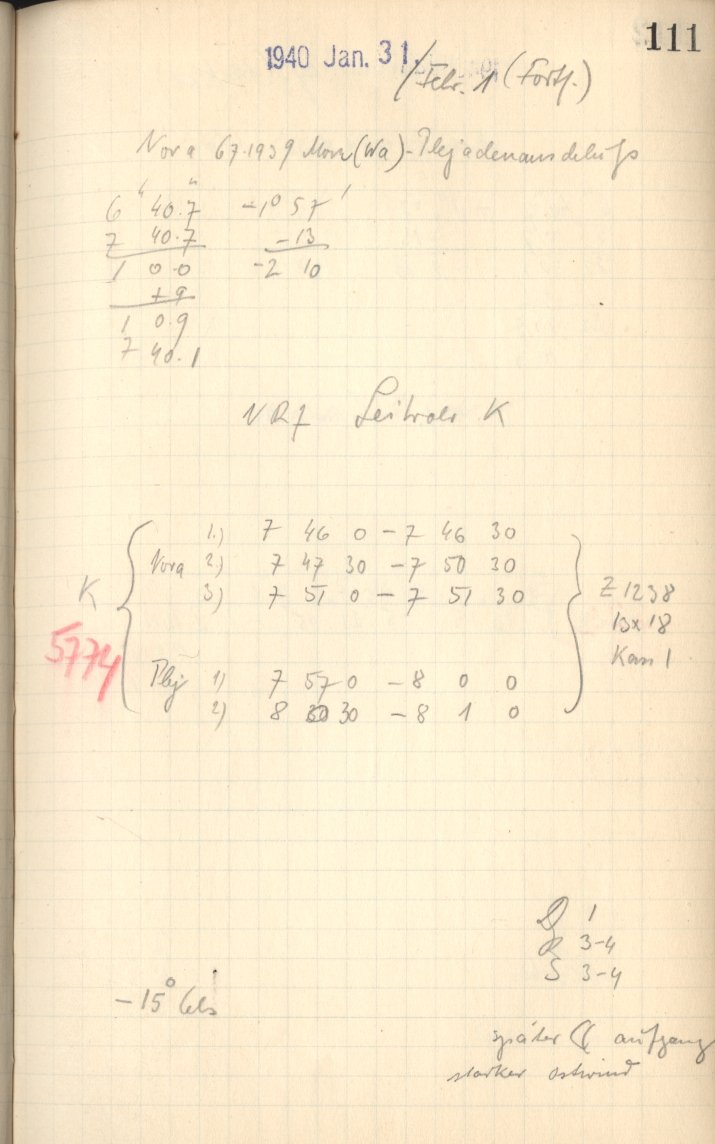 111
1940 Jan. 31.
/Febr. 1 (Forts.)
Nova 67.1939 Mon (Wa) - Plejadenanschluss
6 h 40.7 m -1° 57'
7 40.7 -13
1 0.0 -2 10
+9
1 0.9
7 40.1
K
1.) 7 46 0 - 7 46 30
Nova 2.) 7 47 30 - 7 50 30
3) 7 51 0 - 7 51 30
Z 1238
13x18
Kass 1
5774
Plej 1) 7 57 0 - 8 0 0
2) 8 0 30 - 8 1 0
D 1
R 3-4
S 3-4
-15° Cels
später ☾ aufgang
starker ostwind